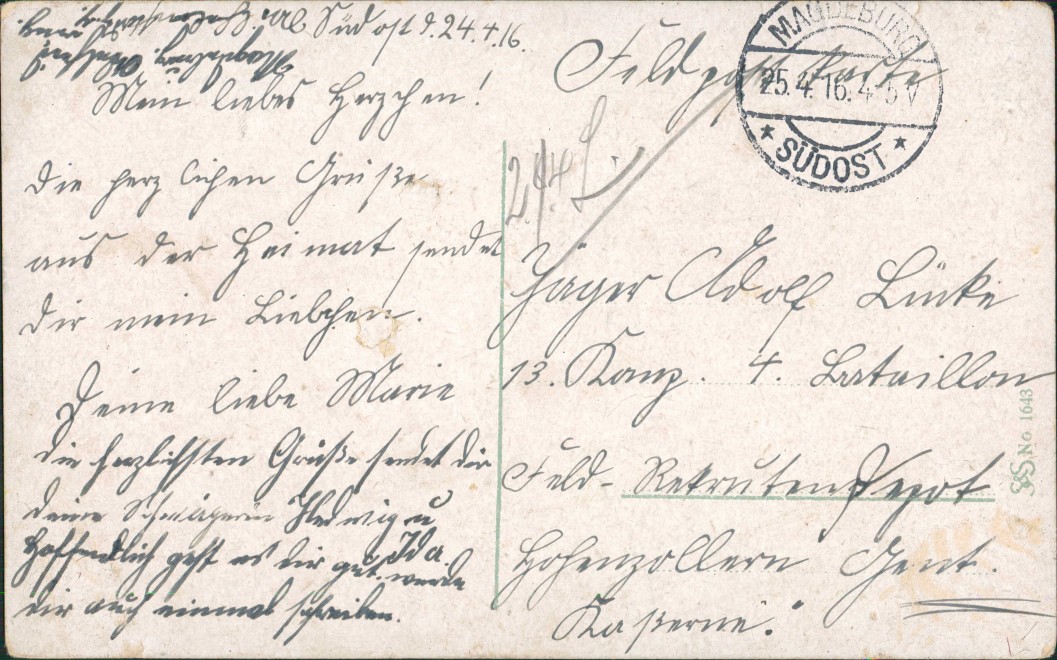 Südost d. 24.4.16.
Mein liebes Herzchen!
die herzlichen Grüße
aus der Heimat sendet
dir mein Liebchen.
Deine liebe Marie
die herzlichsten Grüße sendet dir
deine Schwägerin Hedwig u
Ida.
Hoffendlich geht es dir gut, werde
dir auch einmal schreiben.
Feldpostkarte
MAGDEBURG
25.4.16. 4-5V
* SÜDOST *
24/4.
Jäger Adolf Lücke
13. Komp. 4. Bataillon
Feld-Rekruten Depot
Hohenzollern Gent.
Kaserne.
No 1643